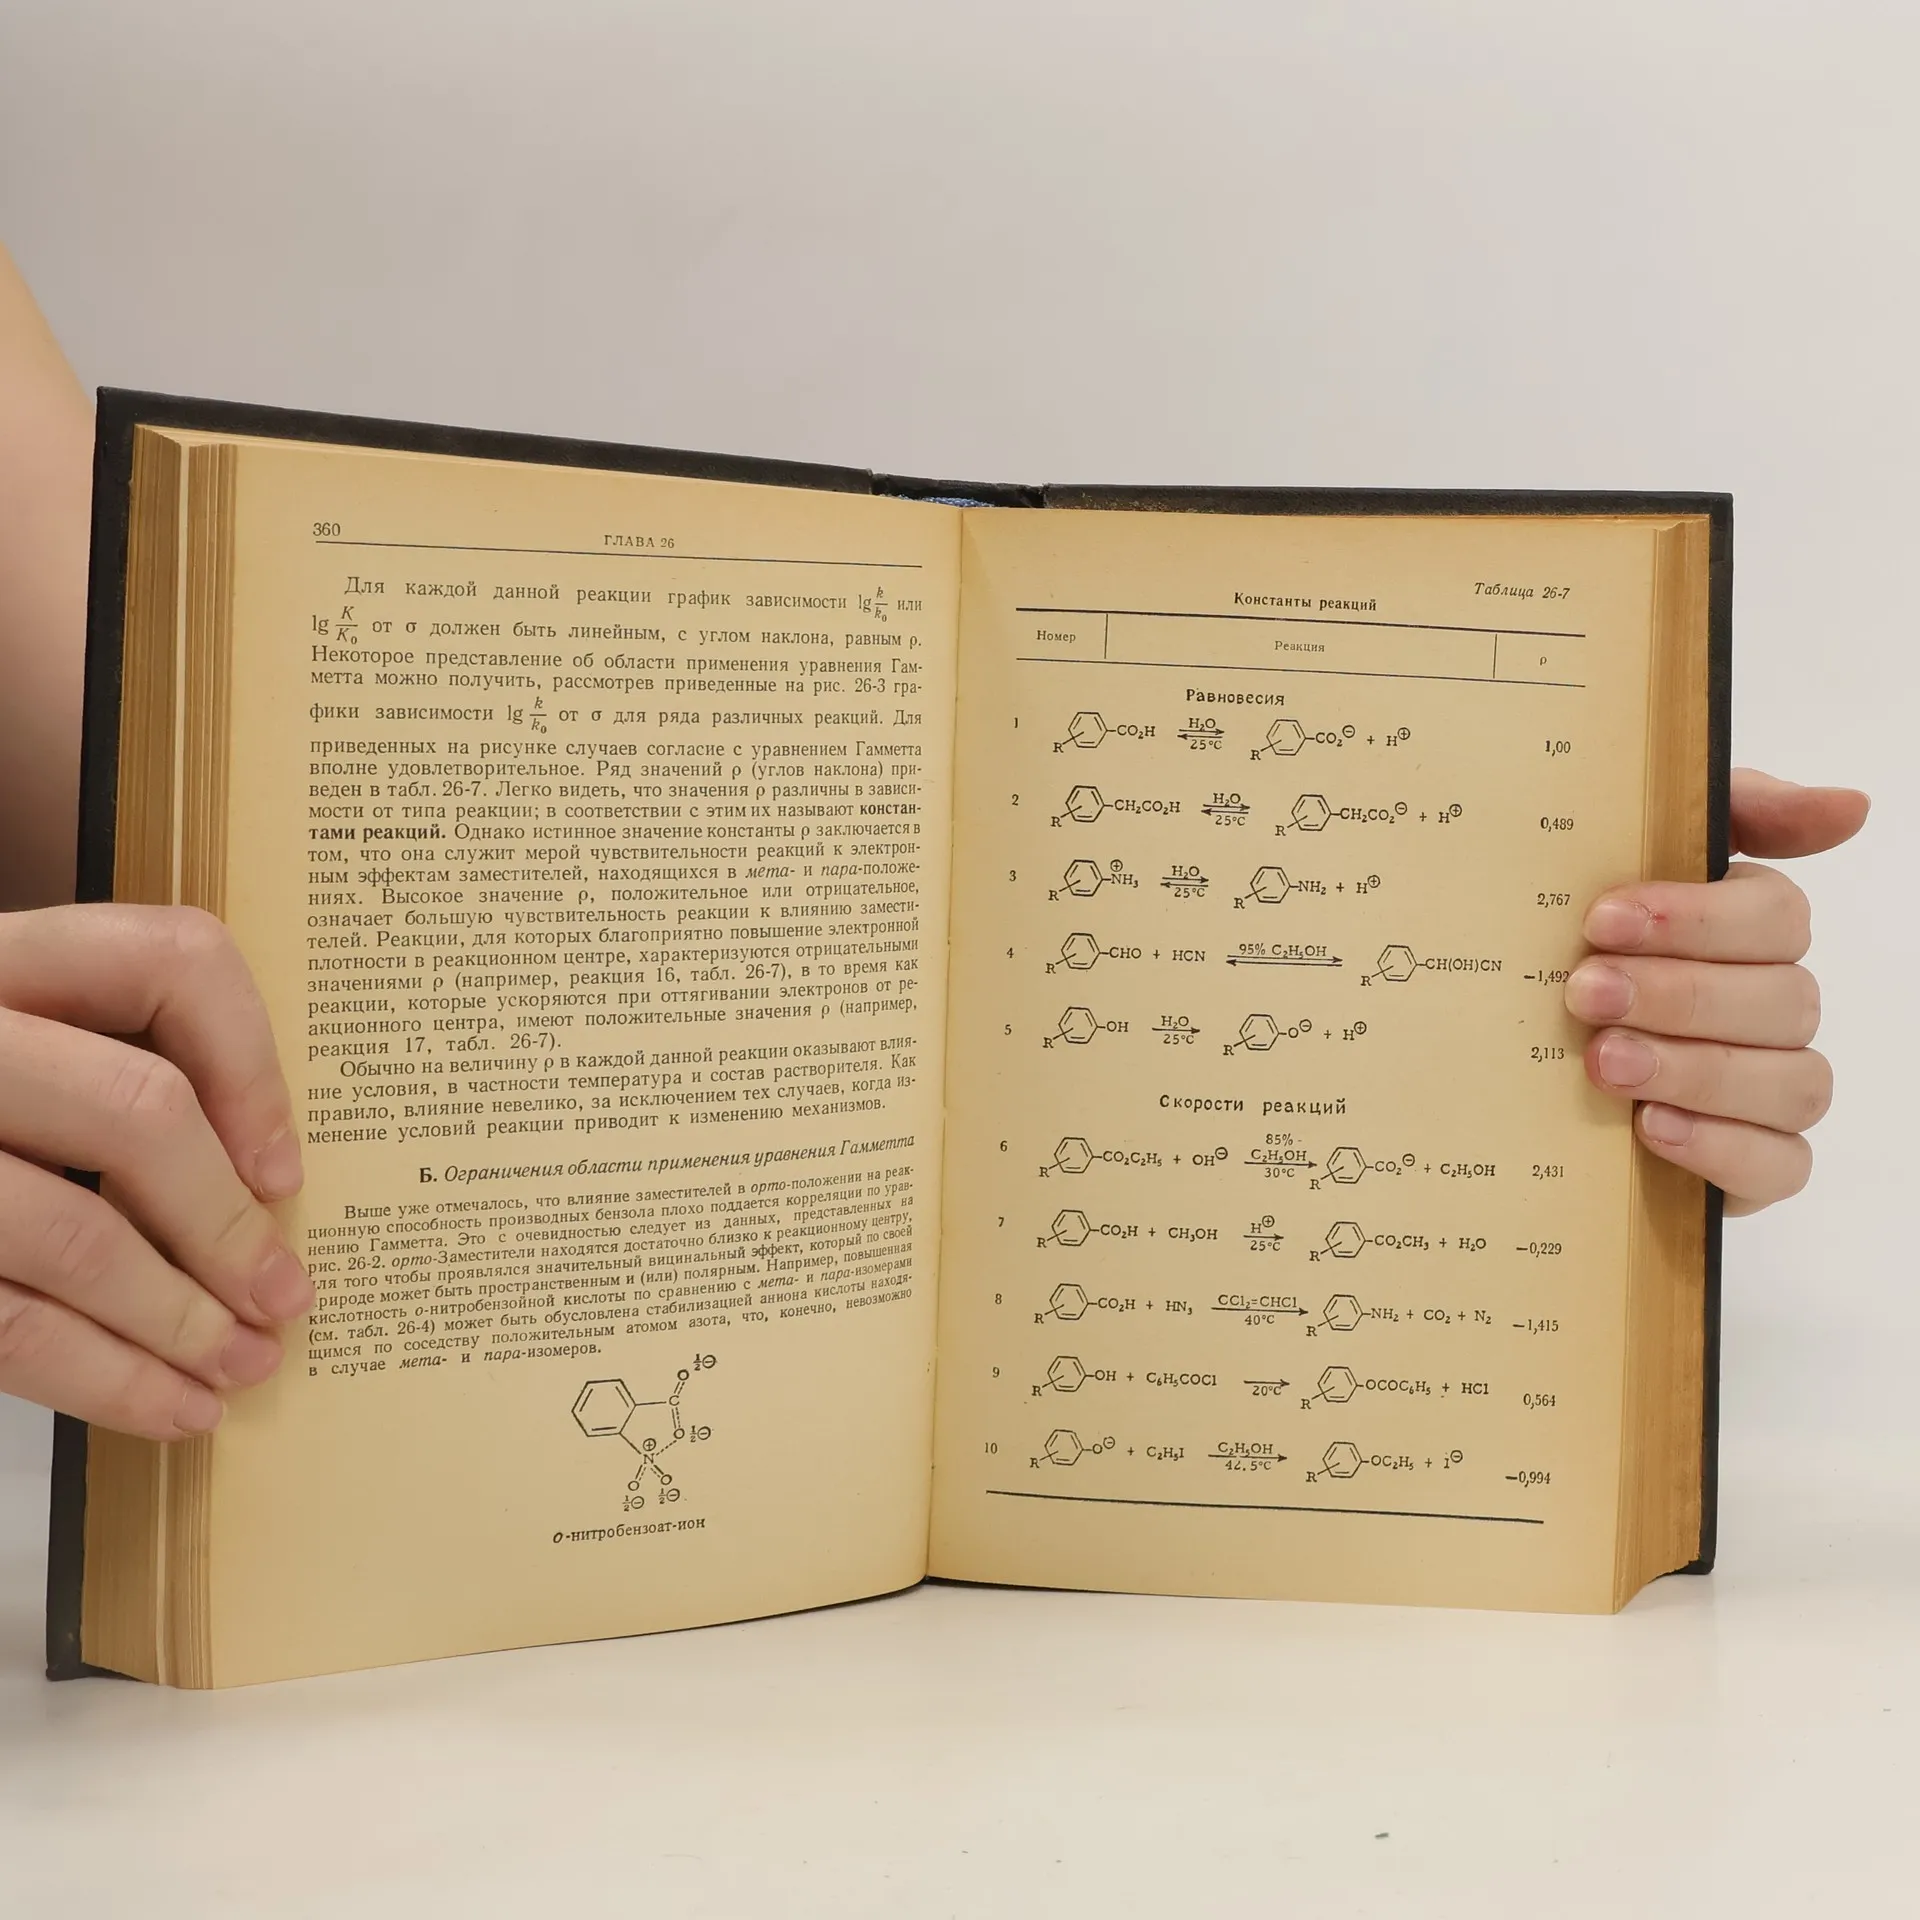 360
ГЛАВА 26
Для каждой данной реакции график зависимости lg k/k₀ или
lg K/K₀ от σ должен быть линейным, с углом наклона, равным ρ.
Некоторое представление об области применения уравнения Гам-
метта можно получить, рассмотрев приведенные на рис. 26-3 гра-
фики зависимости lg k/k₀ от σ для ряда различных реакций. Для
приведенных на рисунке случаев согласие с уравнением Гамметта
вполне удовлетворительное. Ряд значений ρ (углов наклона) при-
веден в табл. 26-7. Легко видеть, что значения ρ различны в зависи-
мости от типа реакции; в соответствии с этим их называют констан-
тами реакций. Однако истинное значение константы ρ заключается в
том, что она служит мерой чувствительности реакций к электрон-
ным эффектам заместителей, находящихся в мета- и пара-положе-
ниях. Высокое значение ρ, положительное или отрицательное,
означает большую чувствительность реакции к влиянию замести-
телей. Реакции, для которых благоприятно повышение электронной
плотности в реакционном центре, характеризуются отрицательными
значениями ρ (например, реакция 16, табл. 26-7), в то время как
реакции, которые ускоряются при оттягивании электронов от ре-
акционного центра, имеют положительные значения ρ (например,
реакция 17, табл. 26-7).
Обычно на величину ρ в каждой данной реакции оказывают влия-
ние условия, в частности температура и состав растворителя. Как
правило, влияние невелико, за исключением тех случаев, когда из-
менение условий реакции приводит к изменению механизмов.
Б. Ограничения области применения уравнения Гамметта
Выше уже отмечалось, что влияние заместителей в орто-положении на реак-
ционную способность производных бензола плохо поддается корреляции по урав-
нению Гамметта. Это с очевидностью следует из данных, представленных на
рис. 26-2. орто-Заместители находятся достаточно близко к реакционному центру,
для того чтобы проявлялся значительный вицинальный эффект, который по своей
природе может быть пространственным и (или) полярным. Например, повышенная
кислотность о-нитробензойной кислоты по сравнению с мета- и пара-изомерами
(см. табл. 26-4) может быть обусловлена стабилизацией аниона кислоты находя-
щимся по соседству положительным атомом азота, что, конечно, невозможно
в случае мета- и пара-изомеров.
O ½⊖
C
O ½⊖
⊕
N
O O
½⊖ ½⊖
о-нитробензоат-ион
Таблица 26-7
Константы реакций
Номер Реакция ρ
Равновесия
1 R -CO₂H H₂O 25°C R -CO₂⊖ + H⊕ 1,00
2 R -CH₂CO₂H H₂O 25°C R -CH₂CO₂⊖ + H⊕ 0,489
3 R -NH₃⊕ H₂O 25°C R -NH₂ + H⊕ 2,767
4 R -CHO + HCN 95% C₂H₅OH R -CH(OH)CN −1,492
5 R -OH H₂O 25°C R -O⊖ + H⊕ 2,113
Скорости реакций
6 R -CO₂C₂H₅ + OH⊖ 85% - C₂H₅OH 30°C R -CO₂⊖ + C₂H₅OH 2,431
7 R -CO₂H + CH₃OH H⊕ 25°C R -CO₂CH₃ + H₂O −0,229
8 R -CO₂H + HN₃ CCl₂=CHCl 40°C R -NH₂ + CO₂ + N₂ −1,415
9 R -OH + C₆H₅COCl 20°C R -OCOC₆H₅ + HCl 0,564
10 R -O⊖ + C₂H₅I C₂H₅OH 42,5°C R -OC₂H₅ + I⊖ −0,994